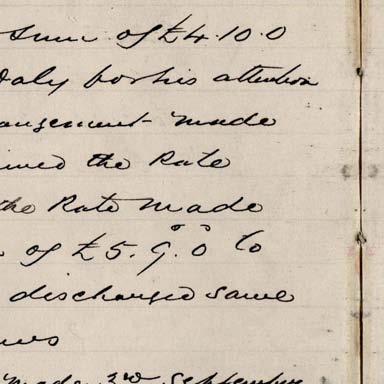 sum of £4.10.0
Daly for his attention
angement made
ined the Rate
the Rate made
of £5.9.0 to
discharged same
made 3rd September